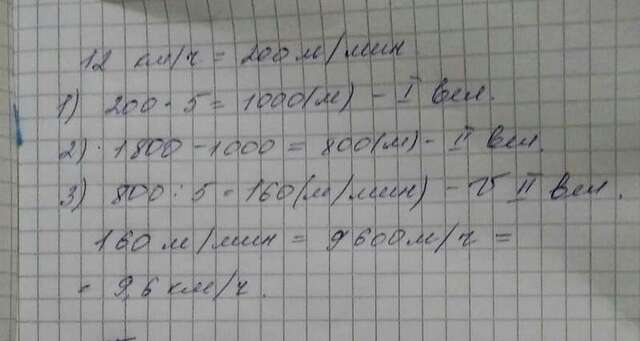 12 км/ч = 200 м/мин
1) 200 · 5 = 1000(м) - I вел.
2) 1800 - 1000 = 800(м) - II вел.
3) 800 : 5 = 160(м/мин) - V II вел.
160 м/мин = 9600 м/ч =
= 9,6 км/ч.